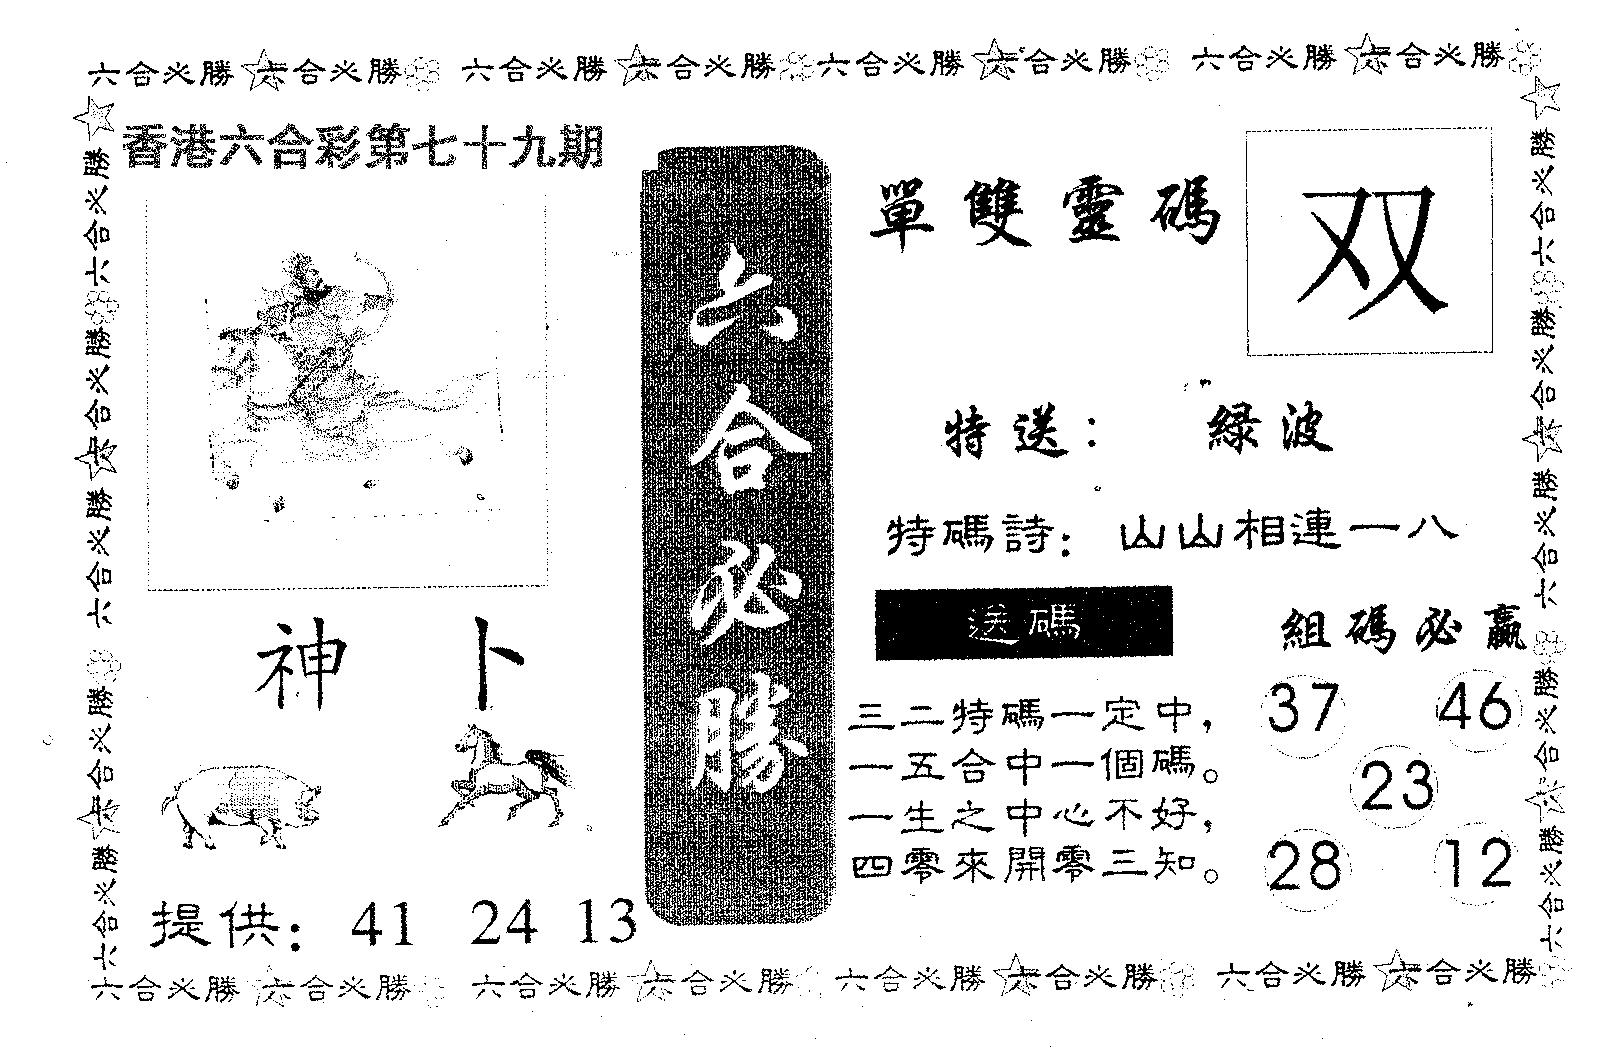 六合必勝 六合必勝 六合必勝 六合必勝 六合必勝 六合必勝 六合必勝 六合必勝
六合必勝 六合必勝 六合必勝 六合必勝 六合必勝
六合必勝 六合必勝 六合必勝 六合必勝 六合必勝
香港六合彩第七十九期
神 卜
提供： 41 24 13
六合必勝
單雙靈碼
双
特送： 緑波
特碼詩：山山相連一八
送碼
三二特碼一定中，
一五合中一個碼。
一生之中心不好，
四零來開零三知。
組碼必贏
37 46
23
28 12
六合必勝 六合必勝 六合必勝 六合必勝 六合必勝 六合必勝 六合必勝 六合必勝